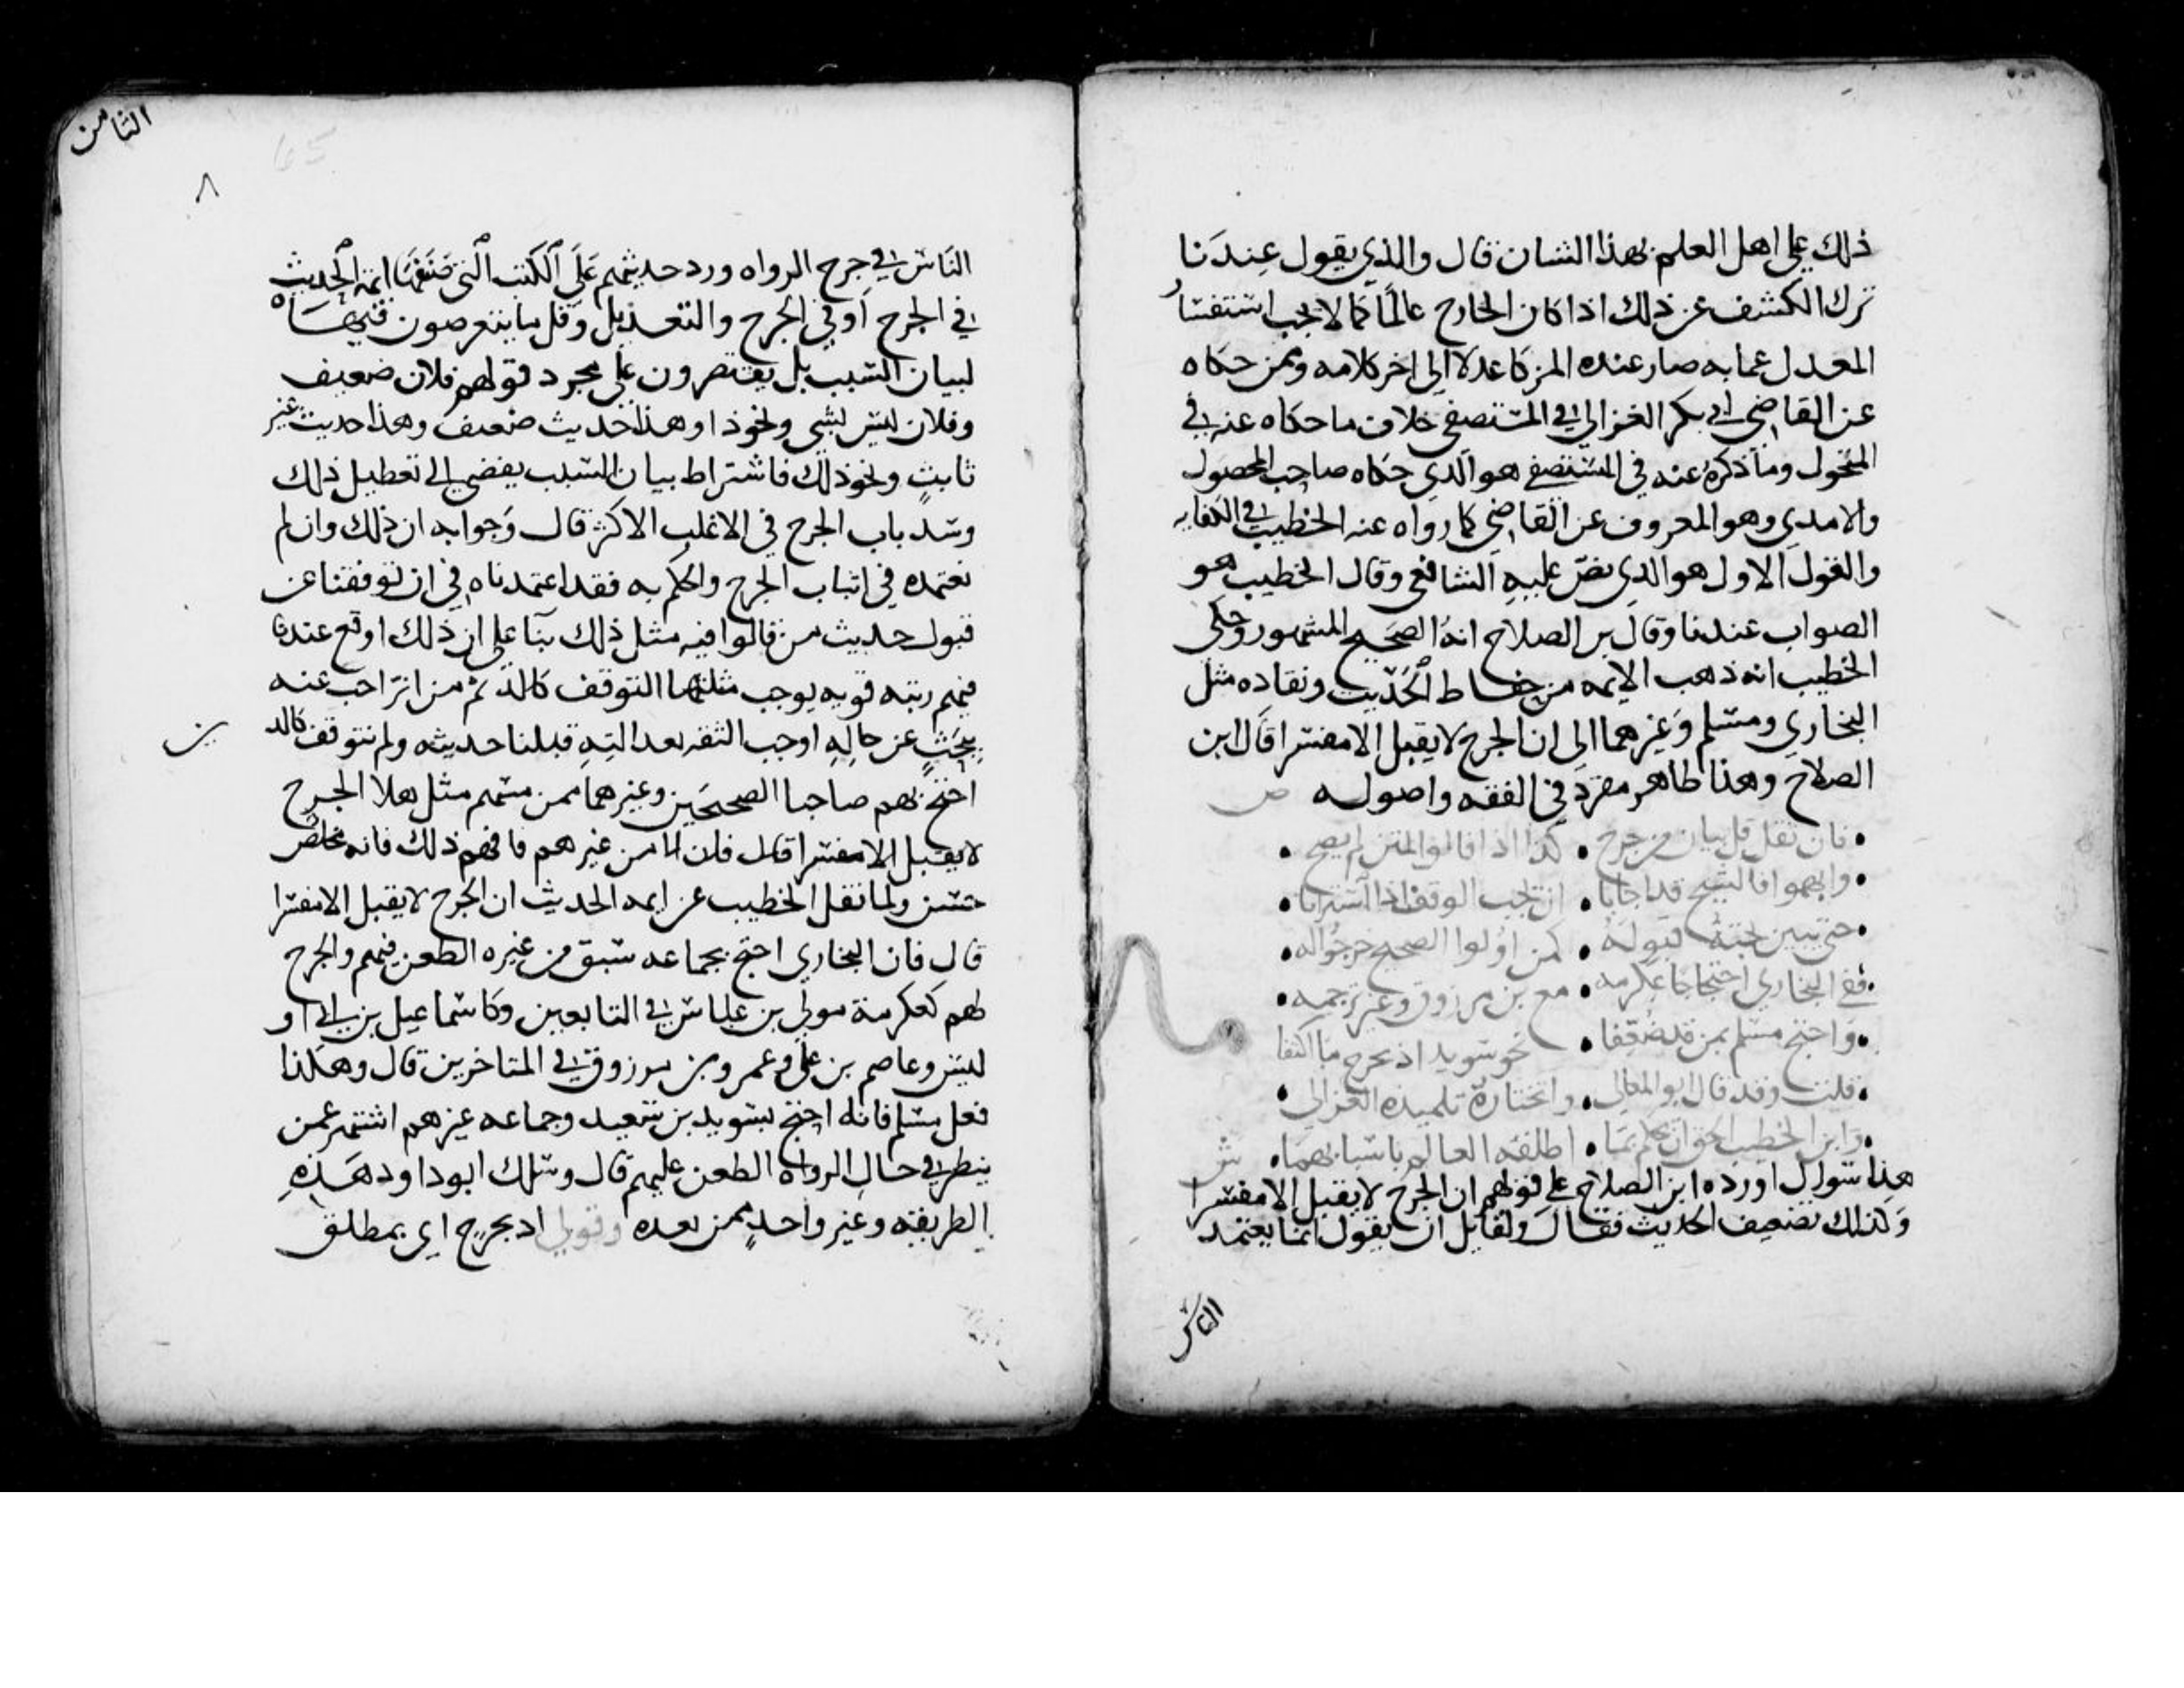 ذلك على اهل العلم بهذا الشان قال والذي يقول عندنا
ترك الكشف عن ذلك اذا كان الجارح عالما كما لا يجب استفسار
المعدل عما به صار عنده المزكا عدلا الى اخر كلامه وممن حكاه
عن القاضي ابي بكر الغزالي في المستصفى خلاف ما حكاه عنه في
المنخول وما ذكره عنه في المستصفى هو الذي حكاه صاحب المحصول
والامدي وهو المعروف عن القاضي كما رواه عنه الخطيب في الكفايه
والقول الاول هو الذي نص عليه الشافعي وقال الخطيب هو
الصواب عندنا وقال بن الصلاح انه الصحيح المشهور وحكى
الخطيب انه ذهب الايمه من حفاظ الحديث ونقاده مثل
البخاري ومسلم وغيرهما الى ان الجرح لا يقبل الا مفسرا قال ابن
الصلاح وهذا ظاهر مقرر في الفقه واصوله ص
• فان يقل قل بيان من جرح • كذا اذا قالوا لمتن لم يصح •
• وابهموا فالشيخ قد اجابا • ان يجب الوقف اذا استرابا •
• حتى يبين بحثه قبوله • كمن اولوا الصحيح خرجوا له •
• ففي البخاري احتجاجا عكرمه • مع بن مرزوق وغير ترجمه •
• واحتج مسلم بمن قد ضعفا • نحو سويد اذ بجرح ما اكتفا
• قلت وقد قال ابو المعالي • واختاره تلميذه الغزالي •
• وابن الخطيب الحق ان يحكم بما • اطلقه العالم باسبابهما • ش
هذا سوال اورده ابن الصلاح على قولهم ان الجرح لا يقبل الا مفسرا
وكذلك تضعيف الحديث فقال ولقايل ان يقول انما يعتمد
الناس
الثامن
٨
65
الناس في جرح الرواه ورد حديثهم على الكتب التي صنفها ايمة الحديث
في الجرح او في الجرح والتعديل وقل ما يتعرضون فيها
لبيان السبب بل يقتصرون على مجرد قولهم فلان ضعيف
وفلان ليس بشي ونحو ذا او هذا حديث ضعيف وهذا حديث غير
ثابت ونحو ذلك فاشتراط بيان السبب يفضي الى تعطيل ذلك
وسد باب الجرح في الاغلب الاكثر قال وجوابه ان ذلك وان لم
نعتمده في اثبات الجرح والحكم به فقد اعتمدناه في ان توقفنا عن
قبول حديث من قالوا فيه مثل ذلك بنا على ان ذلك اوقع عندنا
فيهم ريبه قويه يوجب مثلها التوقف كالذ ثم من انزاحت عنه
ببحث عن حاله اوجب الثقه بعدالته قبلنا حديثه ولم نتوقف كالد
احتج بهم صاحبا الصحيحين وغيرهما ممن مسهم مثل هذا الجرح
لا يقبل الا مفسرا قال فلان اا من غيرهم فافهم ذلك فانه مخلص
حسن ولما نقل الخطيب عن ايمه الحديث ان الجرح لا يقبل الا مفسرا
قال فان البخاري احتج بجماعه سبق من غيره الطعن فيهم والجرح
لهم كعكرمة مولى بن عباس في التابعين وكاسماعيل بن ابي او
ليس وعاصم بن علي وعمرو بن مرزوق في المتاخرين قال وهكذا
فعل مسلم فانه احتج بسويد بن سعيد وجماعه غيرهم اشتهر عمن
ينظر في حال الرواه الطعن عليهم قال وسلك ابو داود هذه
الطريقه وغير واحد ممن بعده وقولي اذ بجرح اي بمطلق